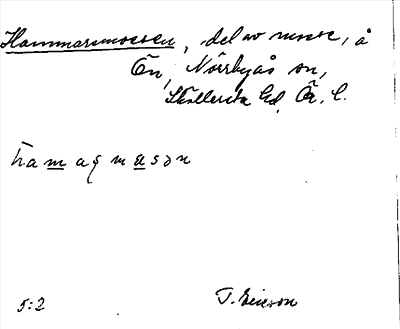 Hammarsmossen, del av mosse, å
Ön, Norrbyås sn,
Sköllersta hd, Ör. l.
hamaʂmɑsən
5:2
T. Ericson